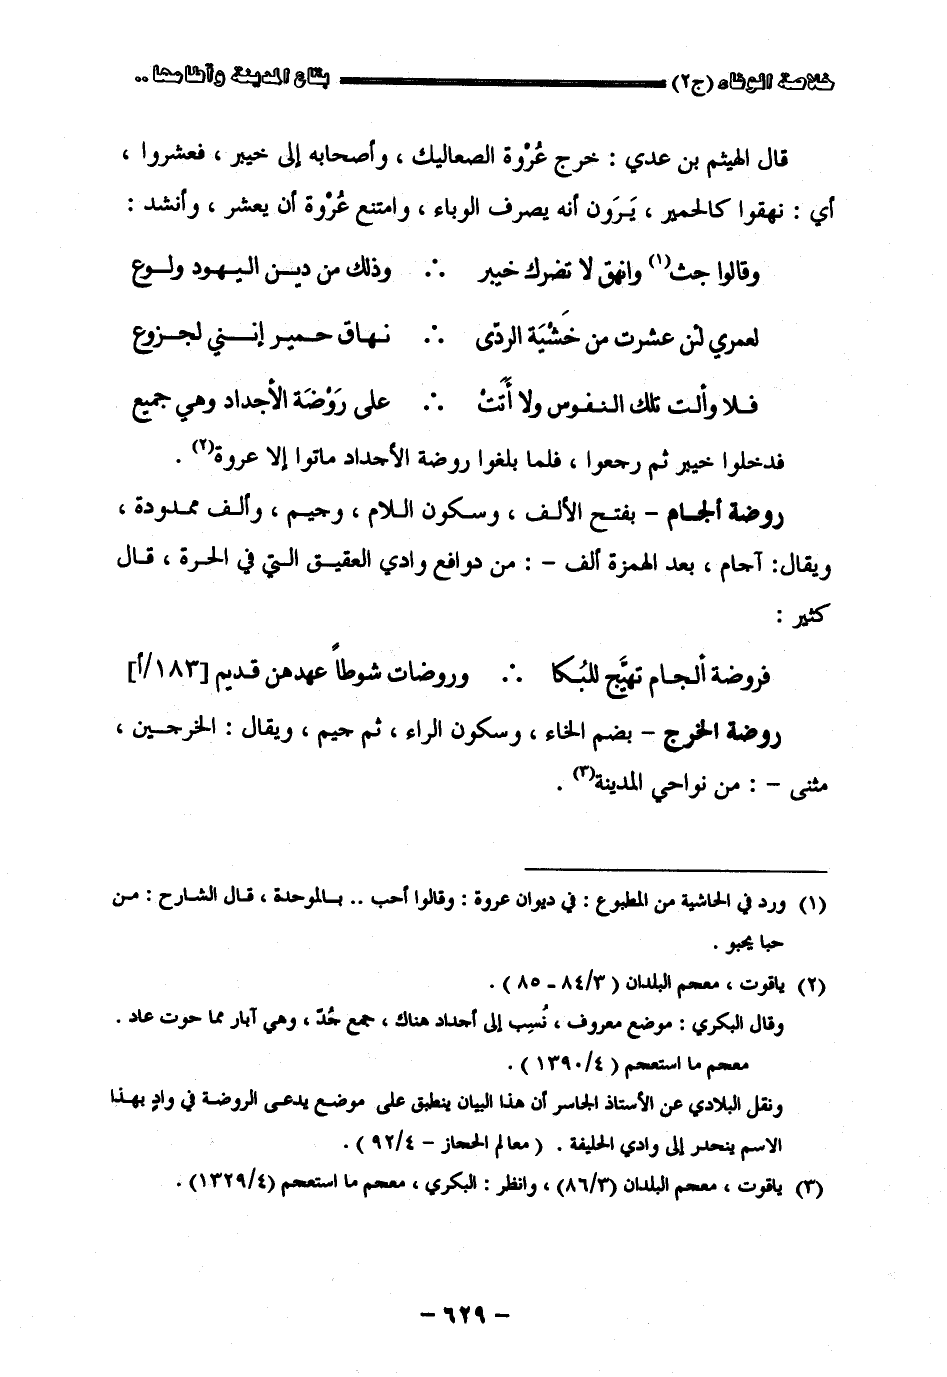 خلاصة الوفاء (ج٢) بقاع المدينة وآطامها ..
قال الهيثم بن عدي : خرج عُرْوة الصعاليك ، وأصحابه إلى خيبر ، فعشروا ،
أي : نهقوا كالحمير ، يَرَون أنه يصرف الوباء ، وامتنع عُرْوة أن يعشر ، وأنشد :
وقالوا جث(١) وانهق لا تضرك خيبر ∴ وذلك من ديـن اليـهود ولـوع
لعمري لئن عشرت من خَشْيَة الردّى ∴ نـهاق حـمير إنـــني لجـزوع
فـلا وألـت تلك النـفوس ولا أَتَتْ ∴ على رَوْضَة الأجداد وهي جميع
فدخلوا خيبر ثم رجعوا ، فلما بلغوا روضة الأجداد ماتوا إلا عروة(٢) .
روضة ألجـام – بفتـح الألف ، وسـكون الـلام ، وجيـم ، وألـف ممـدودة ،
ويقال: آجام ، بعد الهمزة ألف – : من دوافع وادي العقيـق الـتي في الحرة ، قـال
كثير :
فروضة ألـجـام تهيَّج للبُـكا ∴ وروضات شوطاً عهدهن قـديم [١٨٣/أ]
روضة الخرج – بضم الخاء ، وسكون الراء ، ثم جيم ، ويقال : الخرجـين ،
مثنى – : من نواحي المدينة(٣) .
(١) ورد في الحاشية من المطبوع : في ديوان عروة : وقالوا أحب .. بـالموحدة ، قـال الشـارح : مـن
حبا يحبو .
(٢) ياقوت ، معجم البلدان ( ٨٤/٣ ـ ٨٥ ) .
وقال البكري : موضع معروف ، نُسِب إلى أجداد هناك ، جمع جُدّ ، وهي آبار مما حوت عاد .
معجم ما استعجم ( ١٣٩٠/٤ ) .
ونقل البلادي عن الأستاذ الجاسر أن هذا البيان ينطبق على موضـع يدعـى الروضـة في وادٍ بهـذا
الاسم ينحدر إلى وادي الحليفة . ( معالم الحجاز – ٩٢/٤ ) .
(٣) ياقوت ، معجم البلدان (٨٦/٣) ، وانظر : البكري ، معجم ما استعجم (١٣٢٩/٤) .
– ٦٢٩ –